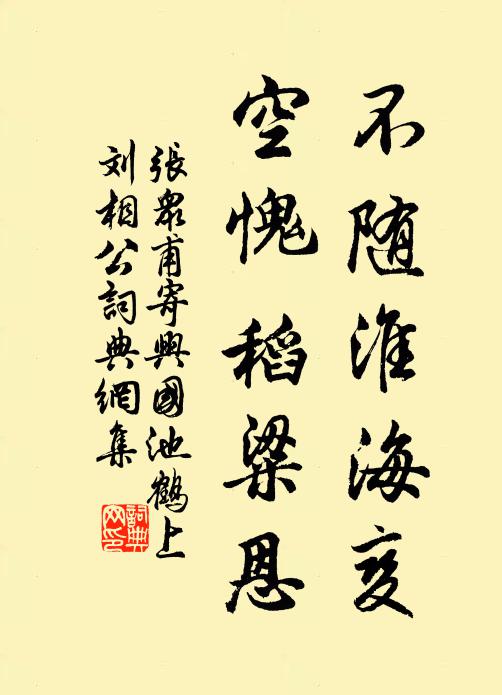 不随淮海变
空愧稻粱恩
張衆甫寄興國池鶴上
刘相公詞典網集
詞典网印